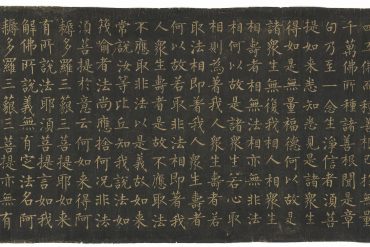 四五佛而種善根已於無量千
萬佛所種諸善根聞是章
句乃至一念生淨信者須菩
提如來悉知悉見是諸衆生
得如是無量福德何以故是
諸衆生無復我相人相衆生
相壽者相無法相亦無非法
相何以故是諸衆生若心取
相則為著我人衆生壽者若
取法相即著我人衆生壽者
何以故若取非法相即著我
人衆生壽者是故不應取法
不應取非法以是義故如來
常說汝等比丘知我說法如
筏喻者法尚應捨何況非法
須菩提於意云何如來得阿
耨多羅三藐三菩提耶如來
有所說法耶須菩提言如我
解佛所說義無有定法名阿
耨多羅三藐三菩提亦無有